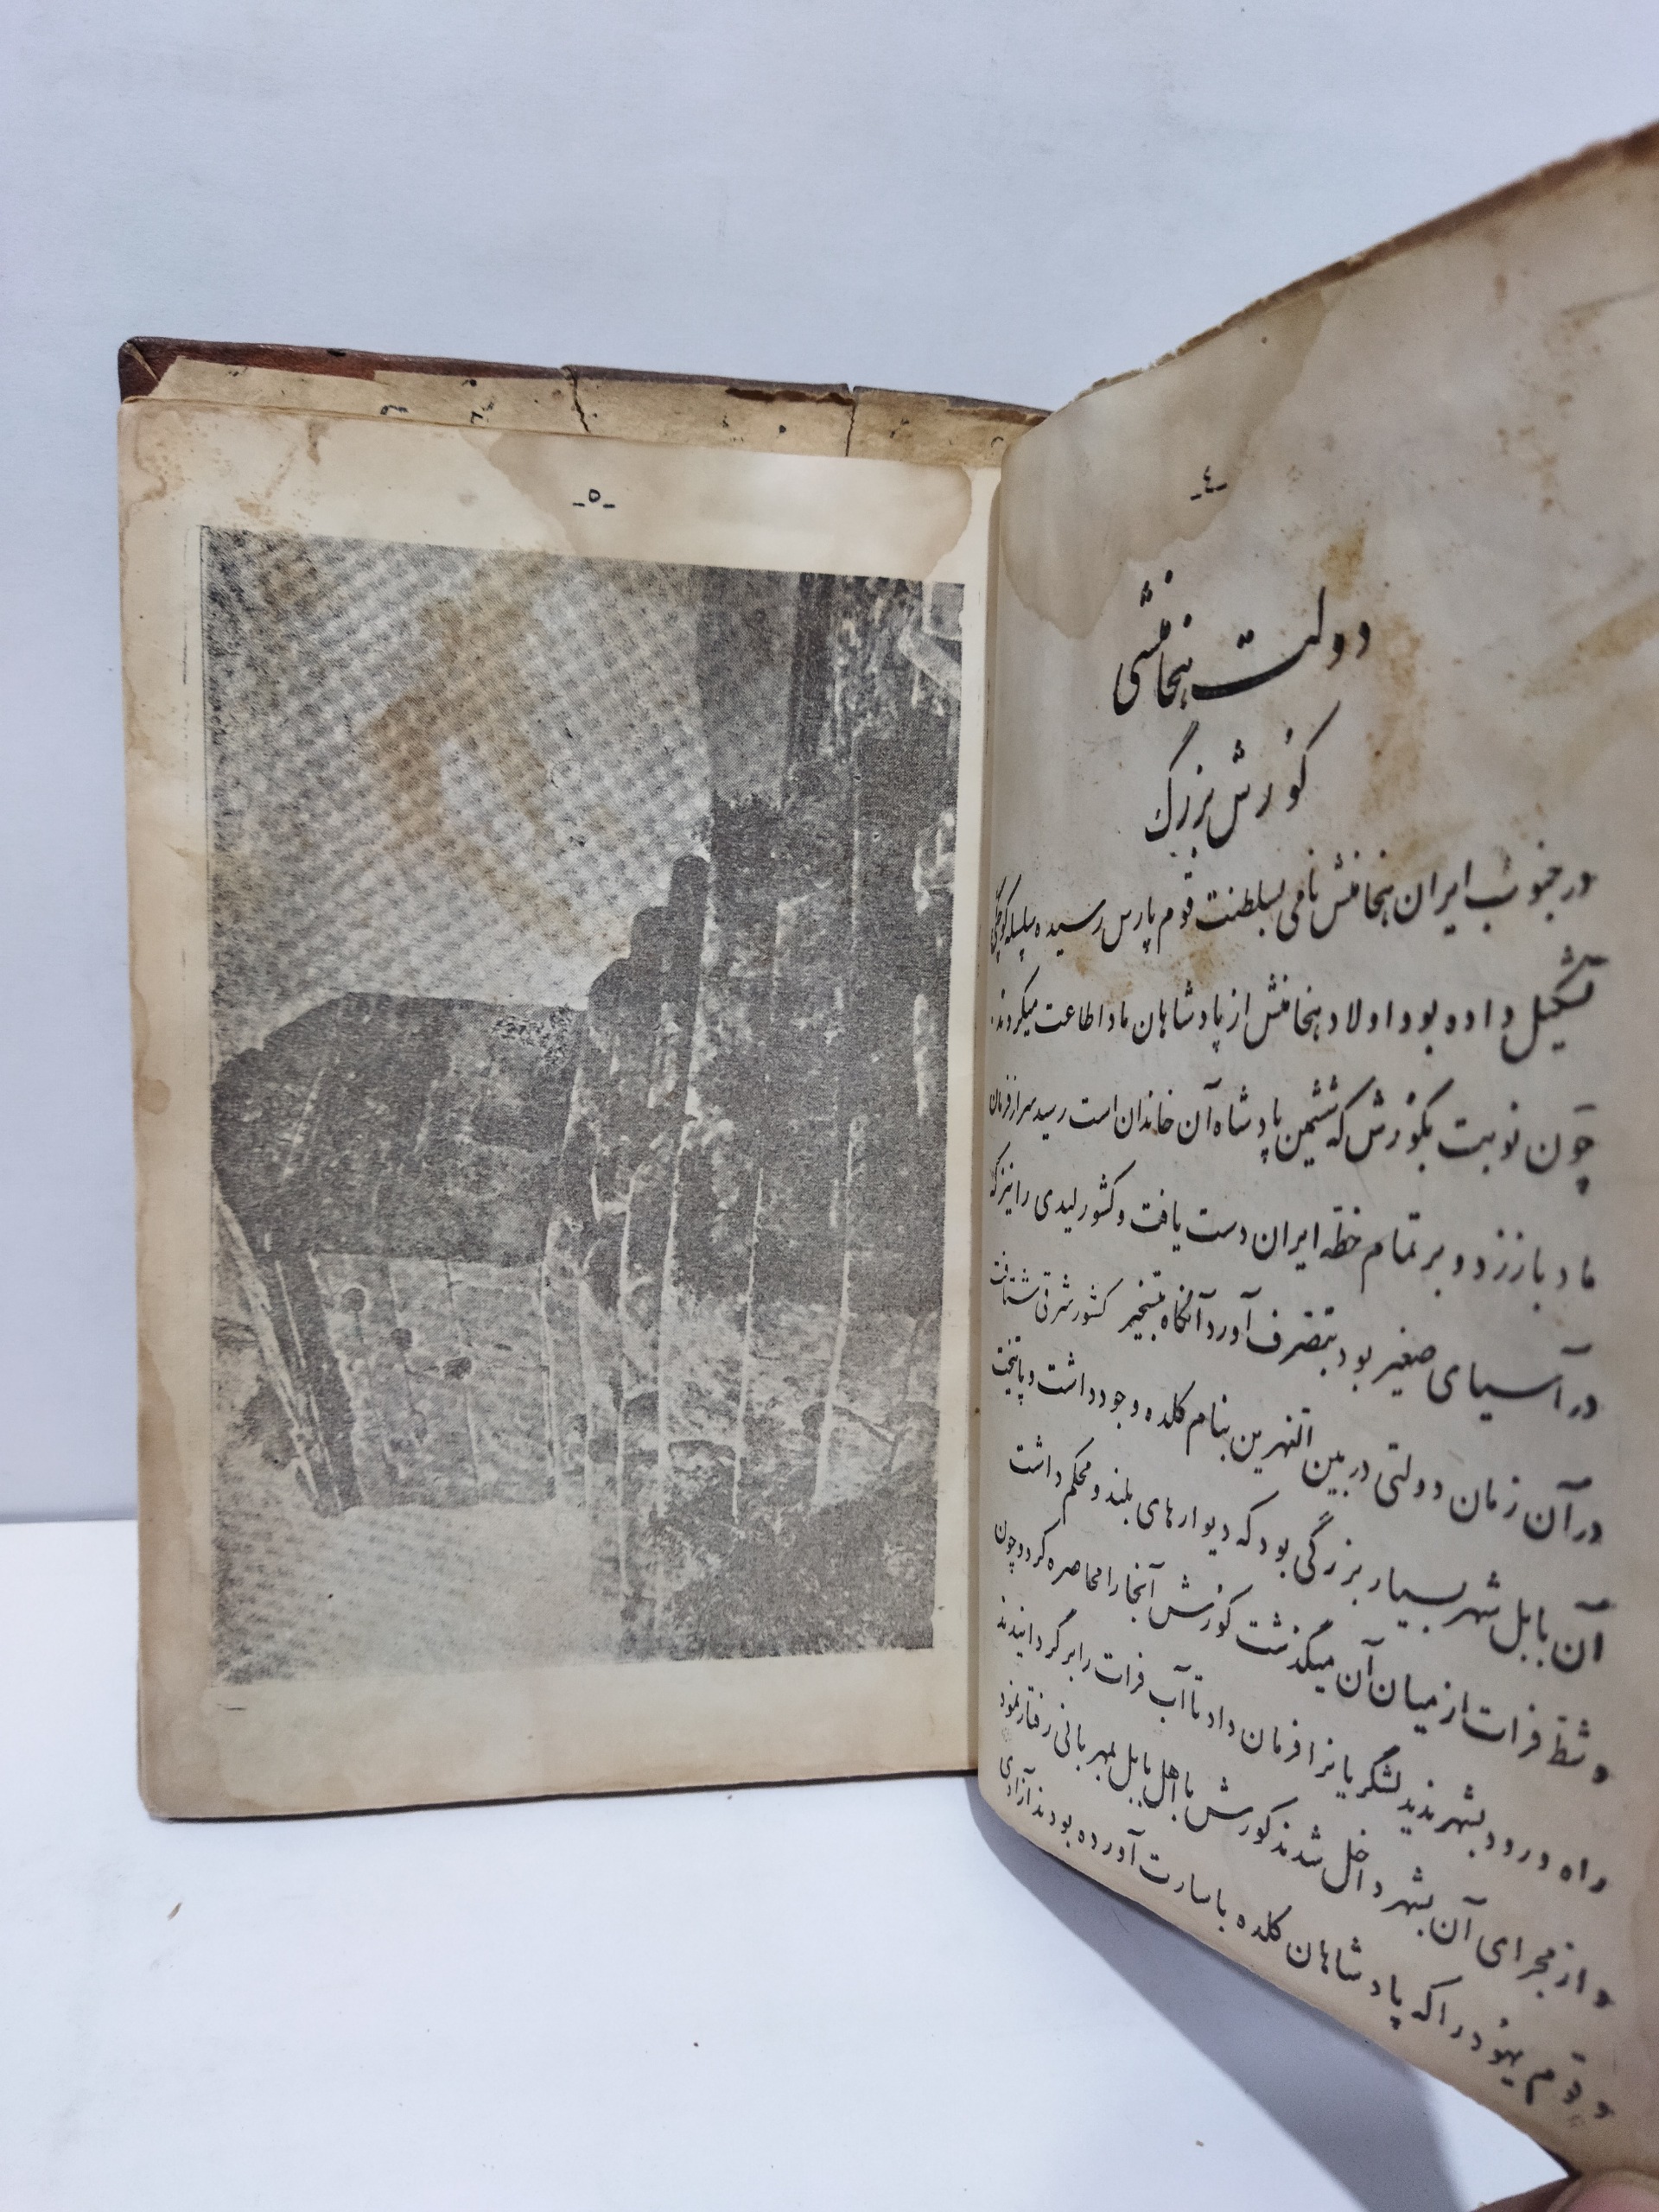 -٤-
دولت هخامنشی
کورش بزرگ
در جنوب ایران هخامنش نامی بسلطنت قوم پارس رسیده سلسله کوچکی
تشکیل داده بود اولاد هخامنش از پادشاهان ماد اطاعت میکردند.
چون نوبت بکورش که ششمین پادشاه آن خاندان است رسید سر از فرمان
ماد باز زد و بر تمام خطه ایران دست یافت و کشور لیدی را نیز که
در آسیای صغیر بود بتصرف آورد آنگاه بتسخیر کشور شرقی شتافت
در آن زمان دولتی در بین النهرین بنام کلده وجود داشت و پایتخت
آن بابل شهر بسیار بزرگی بود که دیوارهای بلند و محکم داشت
و شط فرات از میان آن میگذشت کورش آنجا را محاصره کرد و چون
راه ورود بشهر ندید لشگریانرا فرمان داد تا آب فرات را برگردانیدند
و از مجرای آن بشهر داخل شدند کورش با اهل بابل بمهربانی رفتار نمود
و قوم یهود را که پادشاهان کلده باسارت آورده بودند آزادی
-٥-